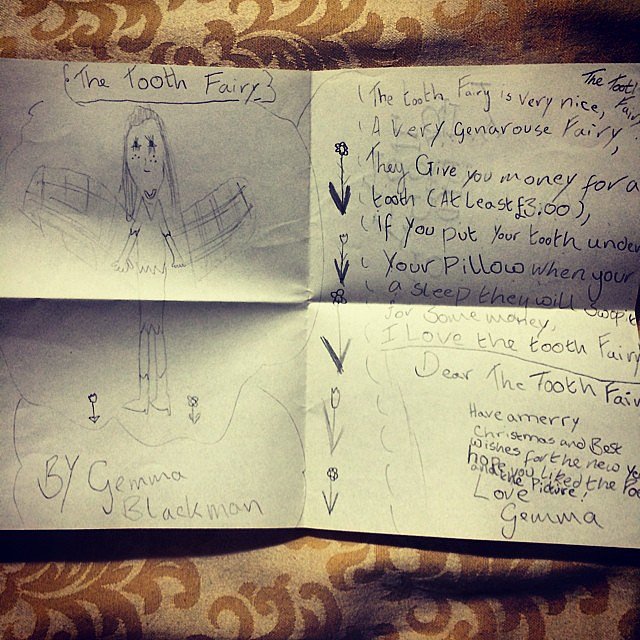 The Tooth Fairy
BY Gemma
Blackman
The Toot
Fairy
The tooth Fairy is very nice,
A very Genarouse Fairy,
They Give you money for a
tooth (At Least £3.00),
If you put your tooth under
Your Pillow when your
a sleep they will swop it
for some money,
I Love the tooth Fairy
Dear The Tooth Fair
Have a merry
Christmas and Best
wishes for the new Ye
hope you liked the Po
and the Picture!
Love
Gemma